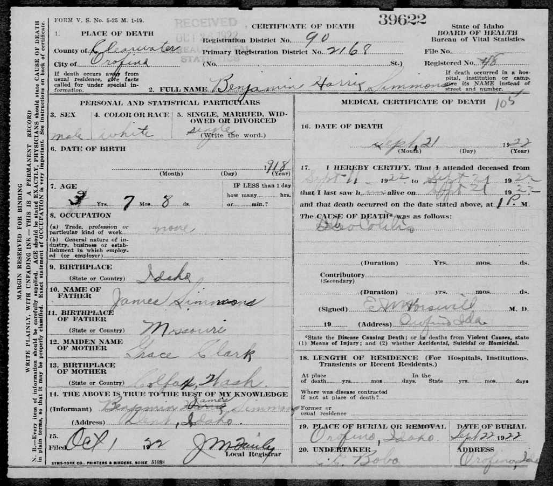 FORM V. S. No. 5-25 M. 1-19.
39622
RECEIVED
1. PLACE OF DEATH
CERTIFICATE OF DEATH
State of Idaho
BOARD OF HEALTH
Bureau of Vital Statistics
County of Clearwater
Registration District No. 90
City of Orofino
Primary Registration District No. 2168
File No.
(No. St.)
Registered No. 48
If death occurs away from usual residence, give facts called for under special information.
If death occurred in a hospital, institution or camp, give its NAME instead of street and number.
2. FULL NAME Benjamin Harris Simmons
PERSONAL AND STATISTICAL PARTICULARS
MEDICAL CERTIFICATE OF DEATH
3. SEX
male
4. COLOR OR RACE
white
5. SINGLE, MARRIED, WIDOWED OR DIVORCED
single
(Write the word.)
16. DATE OF DEATH
Sept. 21 1922
(Month) (Day) (Year)
6. DATE OF BIRTH
1918
(Month) (Day) (Year)
17. I HEREBY CERTIFY, That I attended deceased from
1922 to Sept 21 1922
that I last saw h alive on Sept 21 1922
and that death occurred on the date stated above, at 1 P. M.
7. AGE
3 Yrs. 7 Mos. 8 ds.
IF LESS than 1 day how many hrs. or min.?
The CAUSE OF DEATH* was as follows:
8. OCCUPATION
(a) Trade, profession or particular kind of work
none
(b) General nature of industry, business or establishment in which employed (or employer)
(Duration) Yrs. mos. ds.
Contributory
(Secondary)
(Duration) Yrs. mos. ds.
9. BIRTHPLACE
(State or Country) Idaho
10. NAME OF FATHER
James Simmons
(Signed) M. D.
19 (Address) Orofino Ida
11. BIRTHPLACE OF FATHER
(State or Country) Missouri
*State the Disease Causing Death; or in deaths from Violent Causes, state (1) Means of Injury; and (2) whether Accidental, Suicidal or Homicidal.
12. MAIDEN NAME OF MOTHER
Grace Clark
18. LENGTH OF RESIDENCE (For Hospitals, Institutions, Transients or Recent Residents.)
13. BIRTHPLACE OF MOTHER
(State or Country) Colfax, Wash
At place of death yrs. mos. days. In the State yrs. mos. days
Where was disease contracted if not at place of death?
14. THE ABOVE IS TRUE TO THE BEST OF MY KNOWLEDGE
(Informant) James Simmons
(Address) Idaho
Former or usual residence
19. PLACE OF BURIAL OR REMOVAL
Orofino, Idaho.
DATE OF BURIAL
Sept 22 1922
15.
Filed Oct 1 22
Local Registrar
20. UNDERTAKER
Bobo
ADDRESS
Orofino, Ida
MARGIN RESERVED FOR BINDING
WRITE PLAINLY, WITH UNFADING INK—THIS IS A PERMANENT RECORD